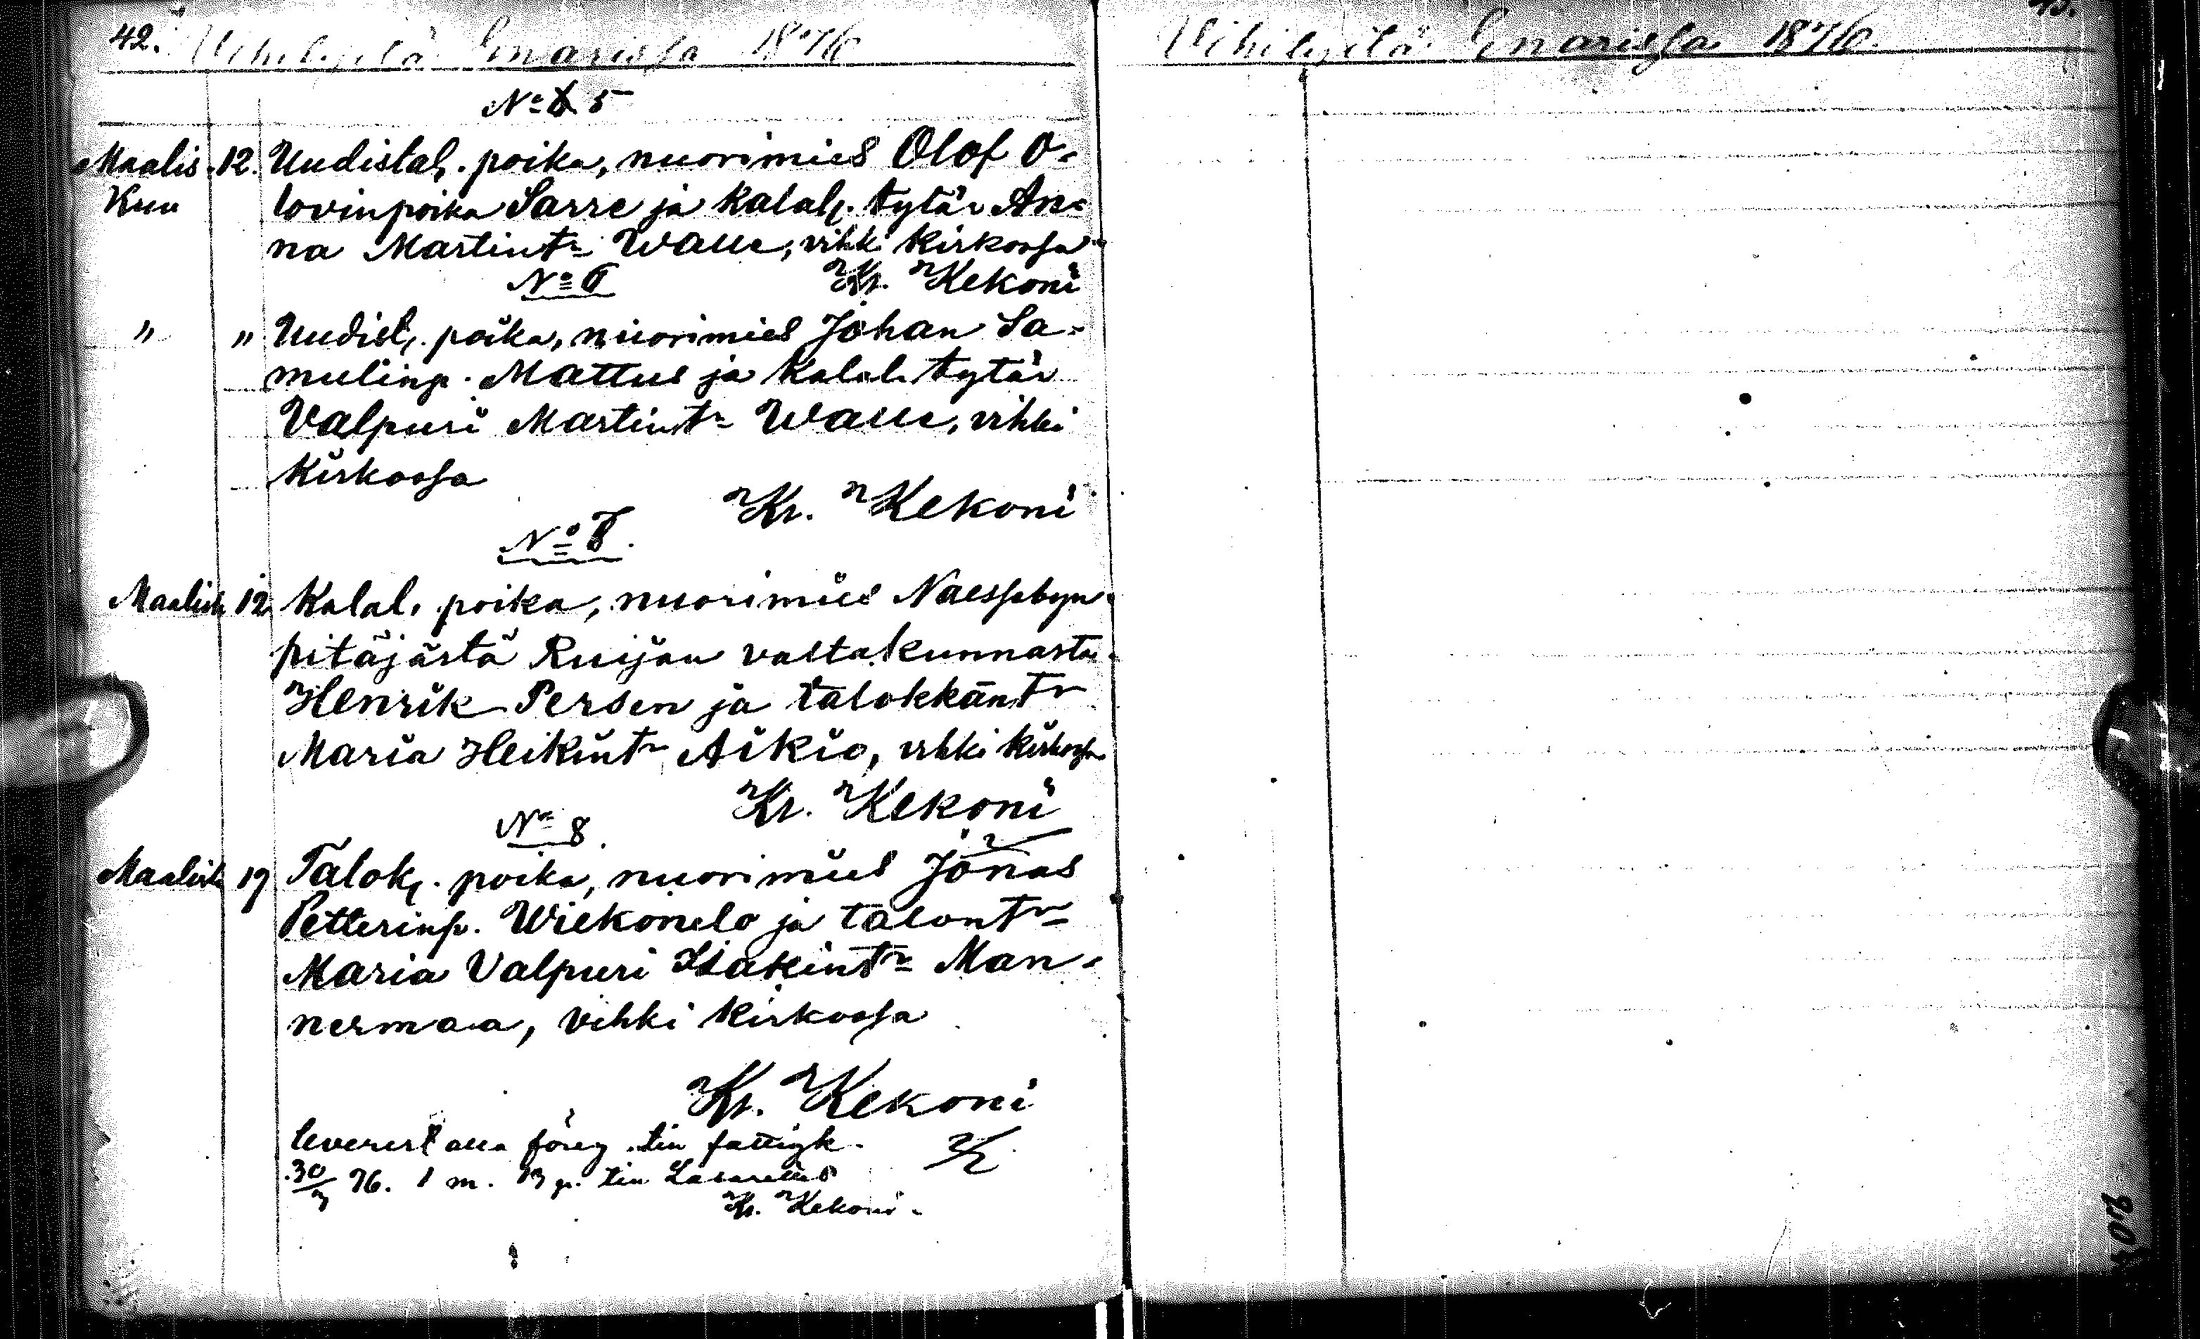 42. Vihilyitä Enarissa 1876
No 5
Maalis 12. Uudistal. poika, nuorimies Olof O-
Kuu lovinpoika Sarre ja kalal. tytär An-
na Martintr Walle, vihki kirkossa
Kr. Kekoni
No 6
" " Uudist. poika, nuorimies Johan Sa-
mulinp. Mattus ja kalal. tytär
Valpuri Martintr Walle, vihki
kirkossa
Kr. Kekoni
No 7.
Maalisk 12 Kalal. poika, nuorimies Naessebyn
pitäjästä Ruijan valtakunnasta
Henrik Persen ja talokkäntr
Maria Heikintr Aikio, vihki kirkossa
Kr. Kekoni
No 8.
Maalisk 19 Talok. poika, nuorimies Jonas
Petterinp. Wiekonelo ja talontr
Maria Valpuri Isakintr Man-
nermaa, vihki kirkossa
Kr. Kekoni
leverert alla föreg. till fattigk.
30/3 76. 1 m. 13 p. till Lasarettet
Kr. Kekoni.
Vihilyitä Enarissa 1876.